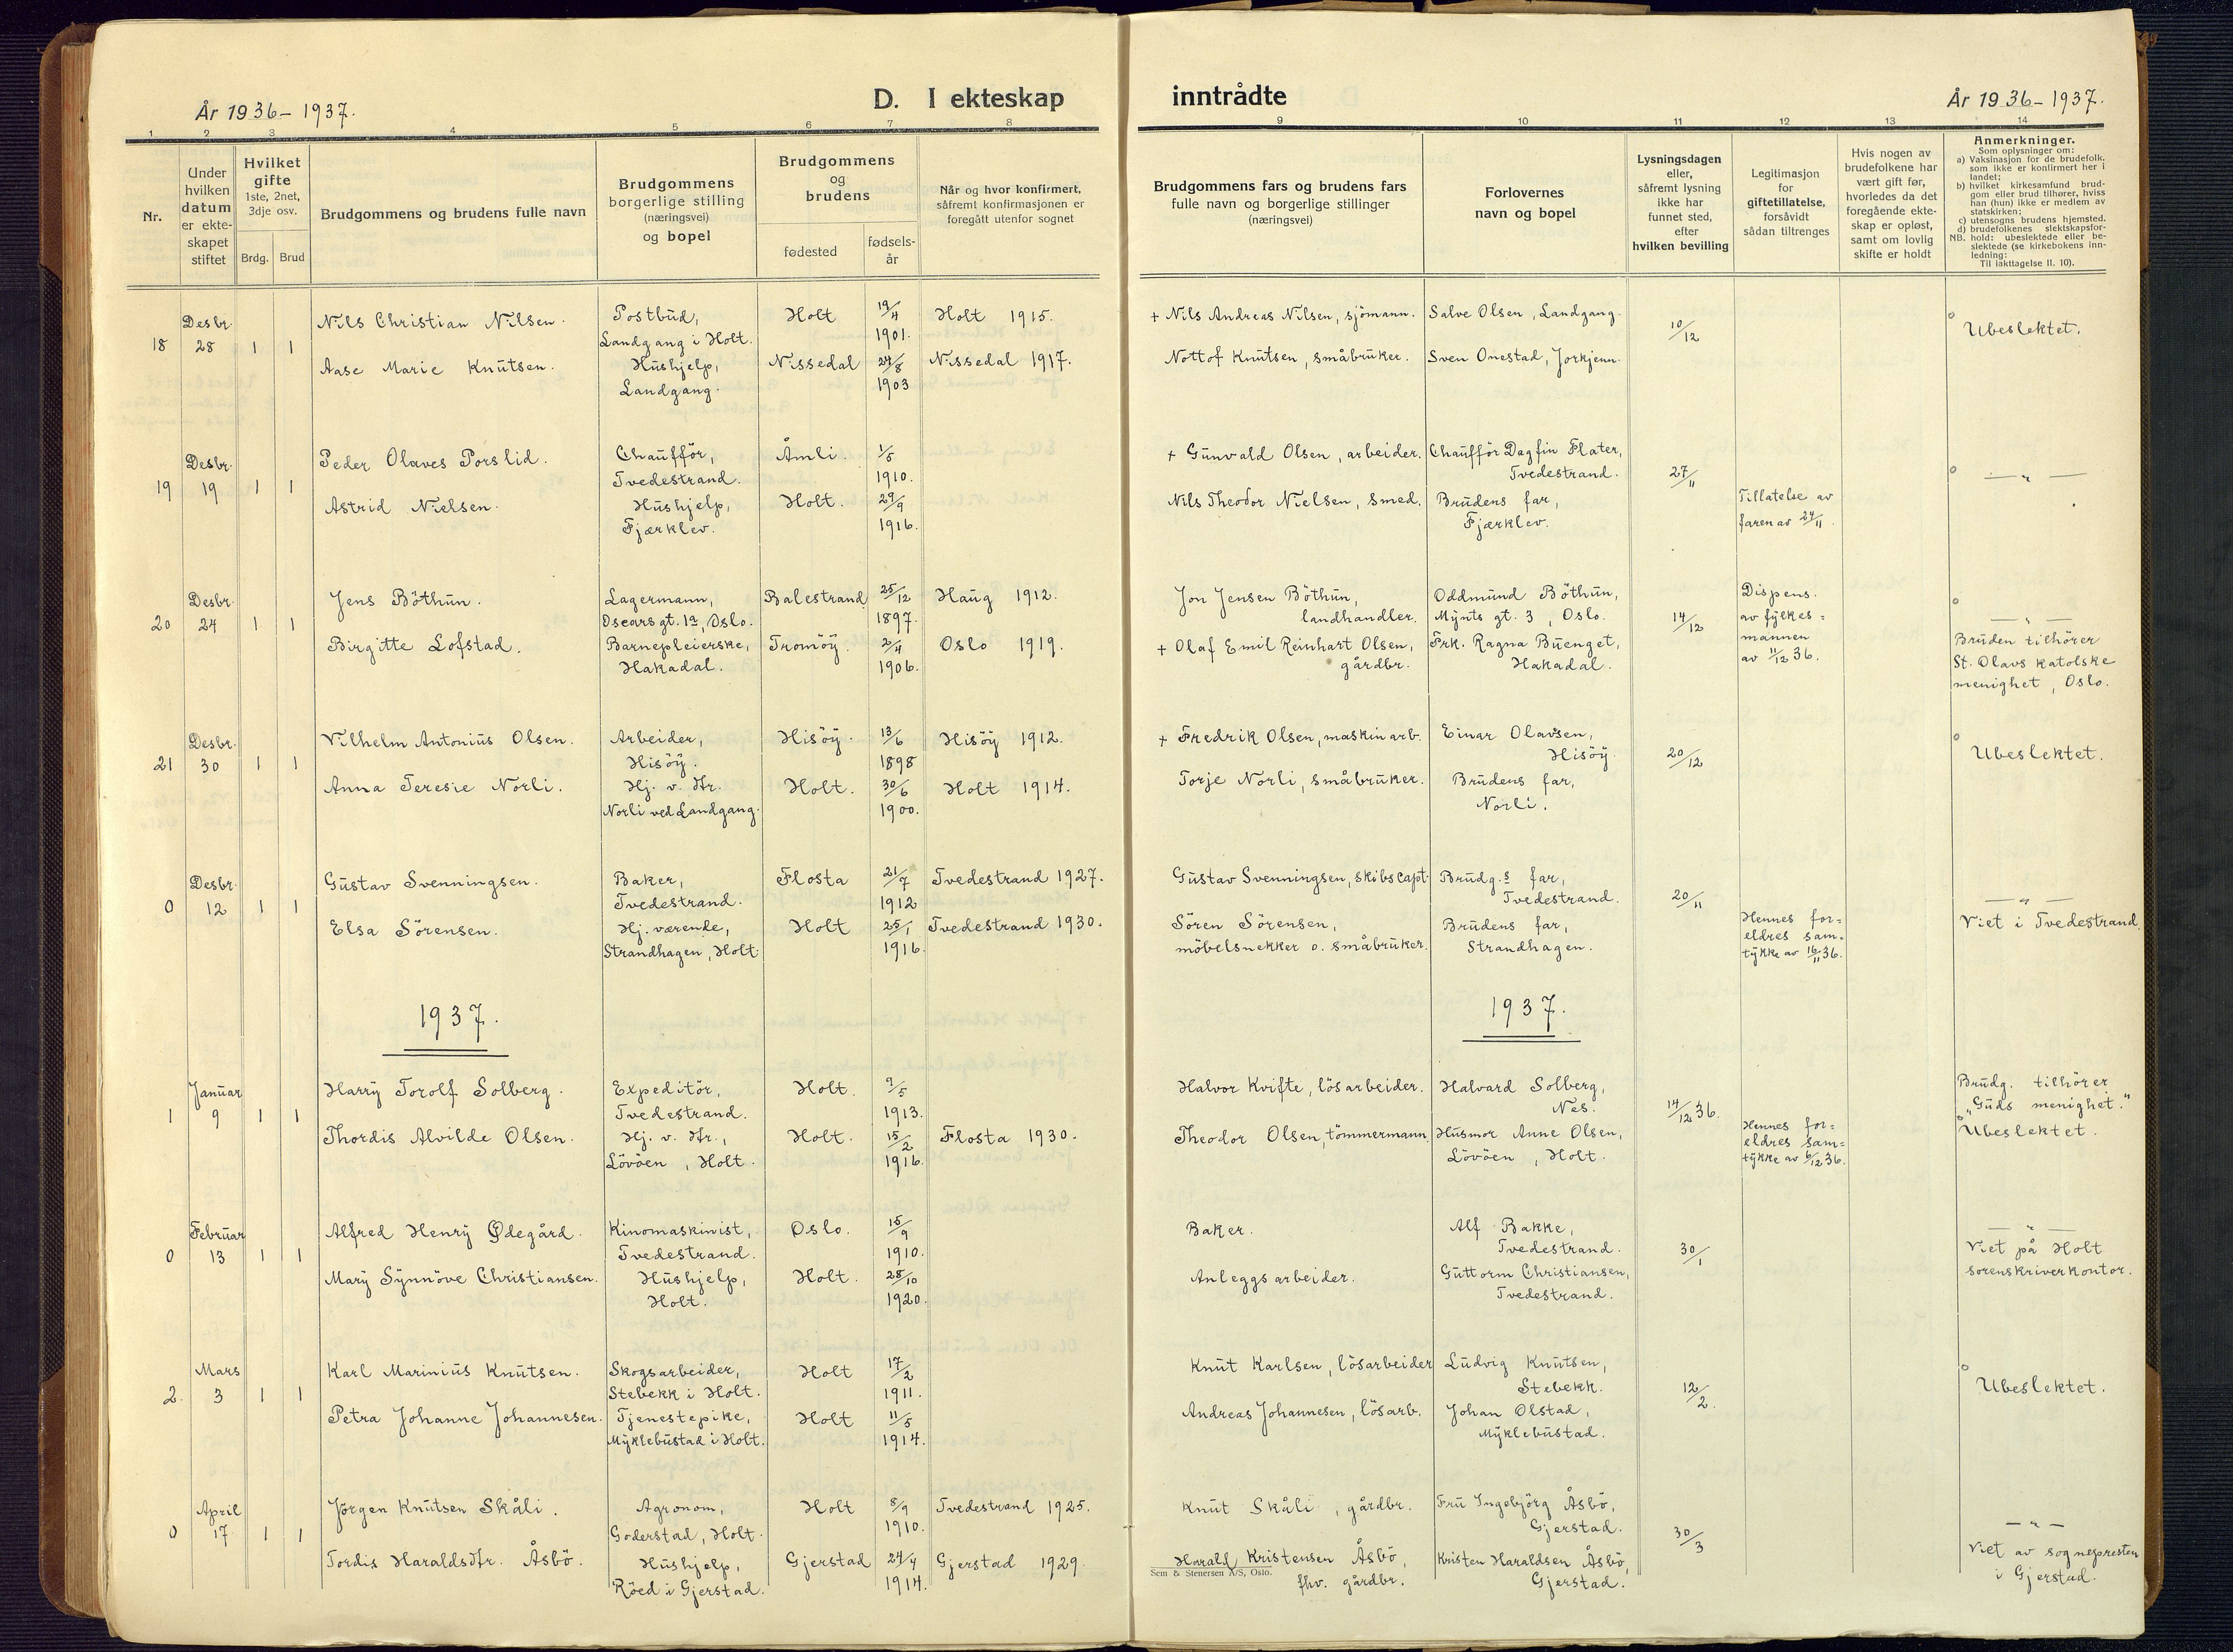 År 1936-1937.
D. I ekteskap
1 2 3 4 5 6 7 8
Nr.
Under hvilken datum er ekteskapet stiftet
Hvilket gifte
1ste, 2net, 3dje osv.
Brdg. Brud
Brudgommens og brudens fulle navn
Brudgommens borgerlige stilling (næringsvei) og bopel
Brudgommens og brudens
fødested
fødsels-år
Når og hvor konfirmert, såfremt konfirmasjonen er foregått utenfor sognet
Desbr.
18 28 1 1
Nils Christian Nilsen.
Postbud,
Landgang i Holt.
Holt 19/4 1901. Holt 1915.
Aase Marie Knutsen.
Hushjelp,
Landgang.
Nissedal 24/8 1903 Nissedal 1917.
Desbr.
19 19 1 1
Peder Olaves Porslid.
Chaufför,
Tvedestrand.
Åmli. 1/5 1910.
Astrid Nielsen.
Hushjelp,
Fjærklev.
Holt. 29/9 1916.
Desbr.
20 24 1 1
Jens Böthun.
Lagermann,
Oscarsgt. 1a, Oslo.
Balestrand 25/12 1897. Haug 1912.
Birgitte Lofstad.
Barnepleierske,
Hakadal.
Tromöy. 2/11 1906. Oslo 1919.
Desbr.
21 30 1 1
Vilhelm Antonius Olsen.
Arbeider,
Hisöy.
Hisöy. 13/6 1898 Hisöy 1912.
Anna Teresie Norli.
Hj. v. dtr.
Norli ved Landgang.
Holt. 30/6 1900. Holt 1914.
Desbr.
0 12 1 1
Gustav Svenningsen.
Baker,
Tvedestrand.
Flosta 21/7 1912 Tvedestrand 1927.
Elsa Sörensen.
Hj. værende,
Strandhagen, Holt.
Holt 25/1 1916. Tvedestrand 1930.
1937.
Januar
1 9 1 1
Harry Torolf Solberg.
Expeditör,
Tvedestrand.
Holt. 9/5 1913.
Thordis Alvilde Olsen.
Hj. v. dtr.,
Lövöen, Holt.
Holt. 15/2 1916. Flosta 1930.
Februar
0 13 1 1
Alfred Henry Ødegård.
Kinomaskinist,
Tvedestrand.
Oslo. 15/9 1910.
Mary Synnöve Christiansen.
Hushjelp,
Holt.
Holt. 28/10 1920.
Mars
2. 3 1 1
Karl Marinius Knutsen.
Skogsarbeider,
Stebekk i Holt.
Holt 17/2 1911.
Petra Johanne Johannesen.
Tjenestepike,
Myklebustad i Holt.
Holt 11/5 1914.
April
0 17 1 1
Jörgen Knutsen Skåli.
Agronom,
Goderstad, Holt.
Holt 8/9 1910. Tvedestrand 1925.
Tordis Haraldsdtr. Åsbö.
Hushjelp,
Röed i Gjerstad.
Gjerstad 24/4 1914. Gjerstad 1929.
inntrådte
År 1936-1937.
9 10 11 12 13 14
Brudgommens fars og brudens fars fulle navn og borgerlige stillinger (næringsvei)
Forlovernes navn og bopel
Lysningsdagen eller, såfremt lysning ikke har funnet sted, efter hvilken bevilling
Legitimasjon for giftetillatelse, forsåvidt sådan tiltrenges
Hvis nogen av brudefolkene har vært gift før, hvorledes da det foregående ekteskap er opløst, samt om lovlig skifte er holdt
Anmerkninger.
Som oplysninger om:
a) Vaksinasjon for de brudefolk, som ikke er konfirmert her i landet;
b) hvilket kirkesamfund brudgom eller brud tilhører, hviss han (hun) ikke er medlem av statskirken;
c) utensogns brudens hjemsted.
d) brudefolkenes slektskapsfor-
NB. hold: ubeslektede eller beslektede (se kirkebokens innledning:
Til iakttagelse II. 10).
+ Nils Andreas Nilsen, sjömann.
Salve Olsen, Landgang.
10/12
Ubeslektet.
Nottof Knutsen, småbruker.
Sven Onestad, Jorkjenn.
+ Gunvald Olsen, arbeider.
Chaufför Dagfin Flater,
Tvedestrand.
27/11
— " —
Nils Theodor Nielsen, smed.
Brudens far,
Fjærklev.
Tillatelse av
faren av 24/11.
Jon Jensen Böthun,
landhandler.
Oddmund Böthun,
Mynts gt. 3, Oslo.
14/12
Dispens.
av fylkes=
mannen
av 11/12 36.
— " —
+ Olaf Emil Reinhart Olsen,
gårdbr.
Frk. Ragna Buenget,
Hakadal.
Bruden tilhörer
St. Olavs katolske
menighet, Oslo.
+ Fredrik Olsen, maskinarb.
Einar Olavsen,
Hisöy.
20/12
Ubeslektet.
Torje Norli, småbruker.
Brudens far,
Norli.
Gustav Svenningsen, skibscapt.
Brudg.s far,
Tvedestrand.
20/11
— " —
Viet i Tvedestrand.
Sören Sörensen,
möbelsnekker o. småbruker.
Brudens far,
Strandhagen.
Hennes for=
eldres sam=
tykke av 16/11 36.
1937.
Halvor Kvifte, lösarbeider.
Halvard Solberg,
Nes.
14/12 36.
Brudg. tilhörer
„Guds menighet."
Ubeslektet.
Theodor Olsen, tömmermann.
Husmor Anne Olsen,
Lövöen, Holt.
Hennes for=
eldres sam=
tykke av 6/12 36.
Baker.
Alf Bakke,
Tvedestrand.
30/1
— " —
Viet på Holt
sorenskriverkontor.
Anleggsarbeider.
Guttorm Christiansen,
Tvedestrand.
Knut Karlsen, lösarbeider
Ludvig Knutsen,
Stebekk.
12/2.
Ubeslektet.
Andreas Johannesen, lösarb.
Johan Olstad,
Myklebustad.
Knut Skåli, gårdbr.
Fru Ingebjörg Åsbö,
Gjerstad.
30/3
— " —
Viet av sognepresten
i Gjerstad.
Harald Kristensen Åsbö,
fhv. gårdbr.
Kristen Haraldsen Åsbö,
Gjerstad.
Sem & Stenersen A/S, Oslo.